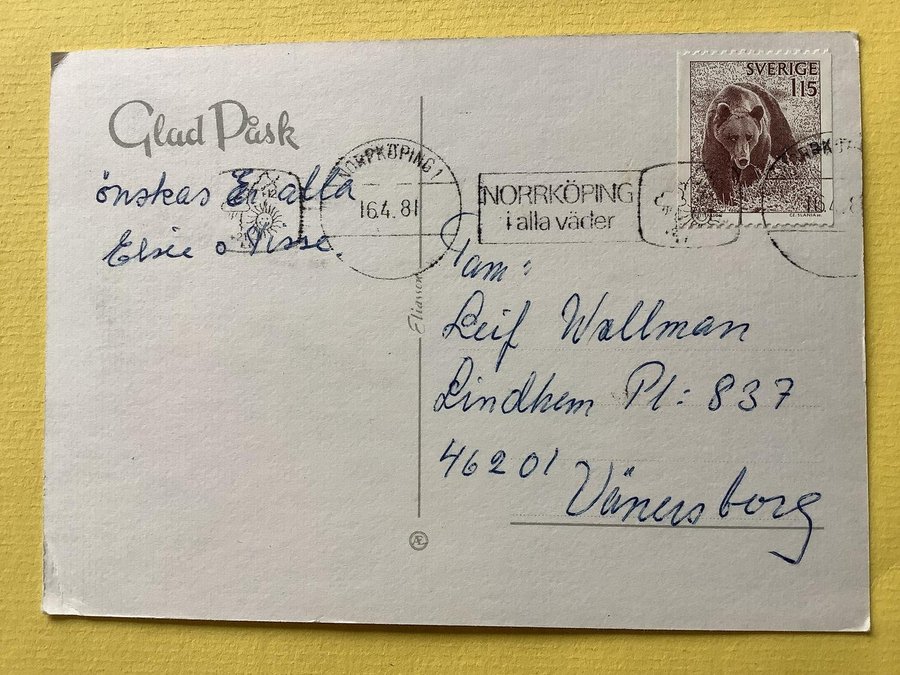 Glad Påsk
önskas Er alla
Elsie o Nisse.
NORRKÖPING 1
16.4.81
NORRKÖPING
i alla väder
SVERIGE
115
CZ. SLANIA SC.
16.4.8
Eliassons
Fam:
Leif Wallman
Lindhem Pl: 837
46201
Vänersborg
Æ